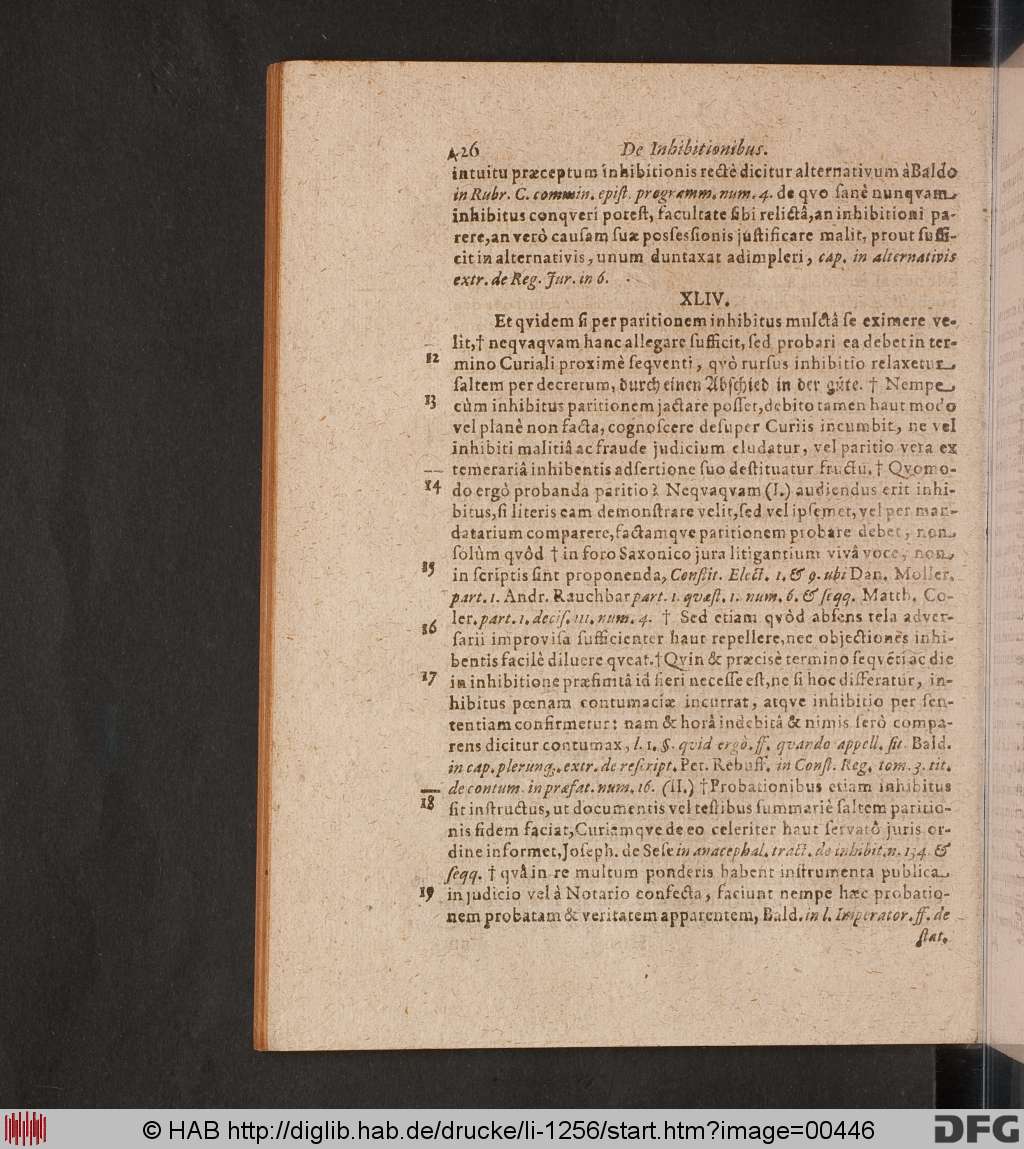 426 De Inhibitionibus.
intuitu præceptum inhibitionis rectè dicitur alternativum à Baldo
in Rubr. C. commin. epiſt. programm. num. 4. de qvo ſanè nunqvam
inhibitus conqveri poteſt, facultate ſibi relictâ, an inhibitioni pa-
rere, an verò cauſam ſuæ posſesſionis juſtificare malit, prout ſuffi-
cit in alternativis, unum duntaxat adimpleri, cap. in alternativis
extr. de Reg. Jur. in 6.
XLIV.
Et qvidem ſi per paritionem inhibitus mulctâ ſe eximere ve-
lit, † neqvaqvam hanc allegare ſufficit, ſed probari ea debet in ter-
12 mino Curiali proximè ſeqventi, qvò rurſus inhibitio relaxetur
ſaltem per decretum, durch einen Abſchied in der güte. † Nempe
13 cùm inhibitus paritionem jactare poſſet, debito tamen haut modo
vel planè non facta, cognoſcere deſuper Curiis incumbit, ne vel
inhibiti malitiâ ac fraude judicium eludatur, vel paritio vera ex
temerariâ inhibentis adſertione ſuo deſtituatur fructu. † Qvomo-
14 do ergò probanda paritio? Neqvaqvam (I.) audiendus erit inhi-
bitus, ſi literis eam demonſtrare velit, ſed vel ipſemet, vel per man-
datarium comparere, factamqve paritionem probare debet, non
ſolùm qvôd † in foro Saxonico jura litigantium vivâ voce, non
15 in ſcriptis ſint proponenda, Conſtit. Elect. 1. & 9. ubi Dan. Moller.
part. 1. Andr. Rauchbar part. 1. quæſt. 1. num. 6. & ſeqq. Matth. Co-
ler. part. 1. deciſ. 111. num. 4. † Sed etiam qvòd abſens tela adver-
16 ſarii improviſa ſufficienter haut repellere, nec objectiones inhi-
bentis facilè diluere qveat. † Qvin & præcisè termino ſeqvēti ac die
17 in inhibitione præfinitâ id fieri neceſſe eſt, ne ſi hoc differatur, in-
hibitus pœnam contumaciæ incurrat, atqve inhibitio per ſen-
tentiam confirmetur: nam & horâ indebitâ & nimis ſerò compa-
rens dicitur contumax, l. 1. §. qvid ergò. ff. qvando appell. ſit. Bald.
in cap. plerunq;. extr. de reſcript. Pet. Rebuff. in Conſt. Reg. tom. 3. tit.
de contum. in præfat. num. 16. (II.) † Probationibus etiam inhibitus
18 ſit inſtructus, ut documentis vel teſtibus ſummariè ſaltem paritio-
nis fidem faciat, Curiamqve de eo celeriter haut ſervatô juris or-
dine informet, Joſeph. de Seſe in anacephal. tract. de inhibit. n. 134. &
ſeqq. † qvâ in re multum ponderis habent inſtrumenta publica
19 in judicio vel à Notario confecta, faciunt nempe hæc probatio-
nem probatam & veritatem apparentem, Bald. in l. Imperator. ff. de
ſtat.
© HAB http://diglib.hab.de/drucke/li-1256/start.htm?image=00446
DFG